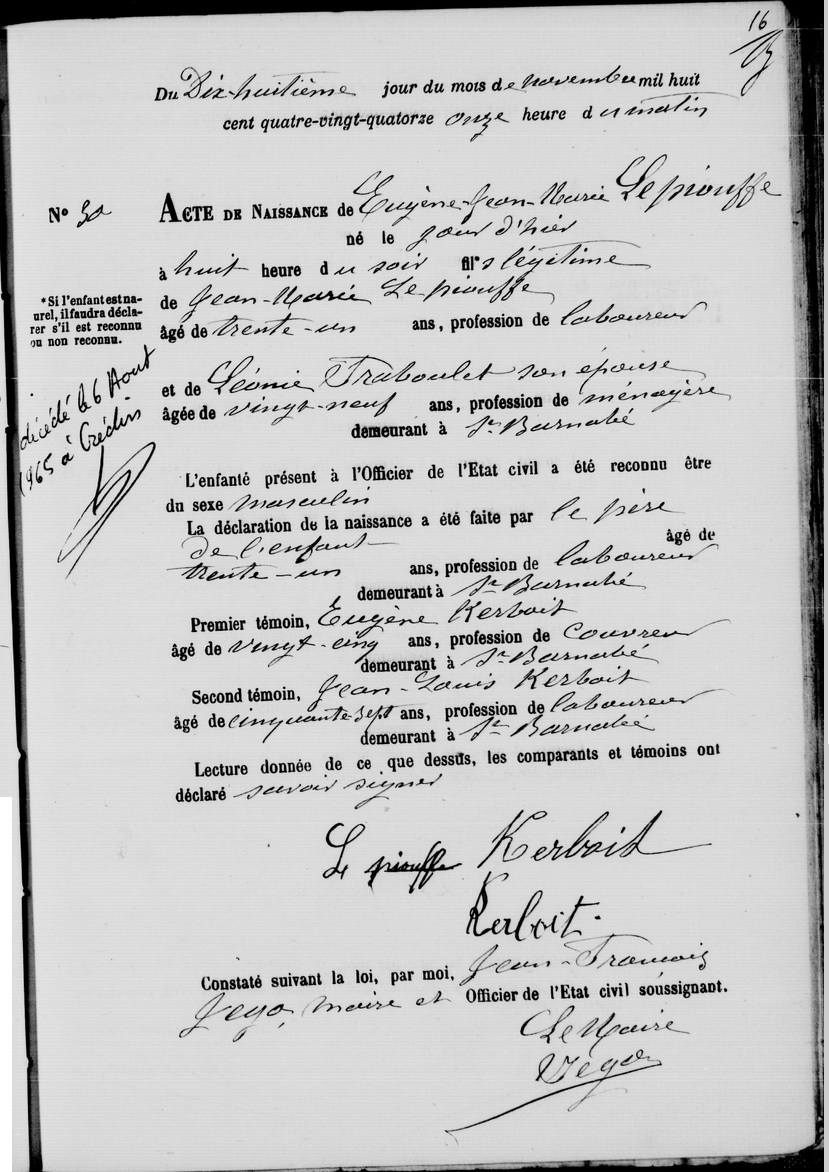 16
Du Dix-huitième jour du mois de novembre mil huit
cent quatre-vingt-quatorze onze heure du matin
N° 30
ACTE DE NAISSANCE de Eugène-Jean-Marie Le piouffe
né le jour d'hier
à huit heure du soir fils légitime
de Jean-Marie Le piouffe
âgé de trente-un ans, profession de laboureur
* Si l'enfant est na-
urel, il faudra décla-
rer s'il est reconnu
ou non reconnu.
décédé le 6 Aout
1965 à Crédin
et de Léonie Traboulet son épouse
âgée de vingt-neuf ans, profession de ménagère
demeurant à St Barnabé
L'enfanté présent à l'Officier de l'Etat civil a été reconnu être
du sexe masculin
La déclaration de la naissance a été faite par le père
de l'enfant âgé de
trente-un ans, profession de laboureur
demeurant à St Barnabé
Premier témoin, Eugène Kerboit
âgé de vingt-cinq ans, profession de couvreur
demeurant à St Barnabé
Second témoin, Jean-Louis Kerboit
âgé de cinquante-sept ans, profession de laboureur
demeurant à St Barnabé
Lecture donnée de ce que dessus, les comparants et témoins ont
déclaré savoir signer
Le piouffe Kerboit
Kerboit.
Constaté suivant la loi, par moi, Jean-François
Jego, maire et Officier de l'Etat civil soussignant.
Le Maire
Jégo